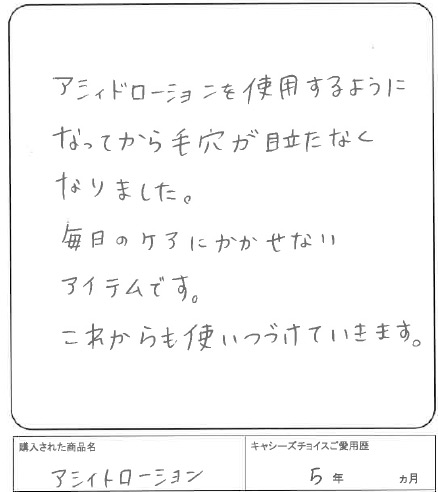 アシィドローションを使用するように
なってから毛穴が目立たなく
なりました。
毎日のケアにかかせない
アイテムです。
これからも使いつづけていきます。
購入された商品名
キャシーズチョイスご愛用歴
アシィトローション
5年 ヵ月